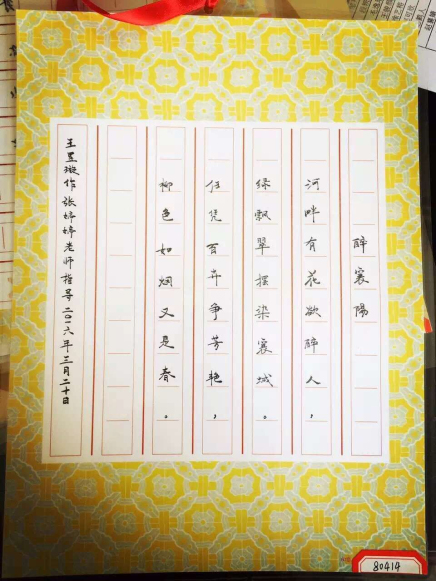 醉襄陽
河畔有花欲醉人，
绿飘翠摆染襄城。
任凭百卉争芳艳，
柳色如烟又是春。
王昱璇作张婷婷老师指导二〇一六年三月二十日
80414